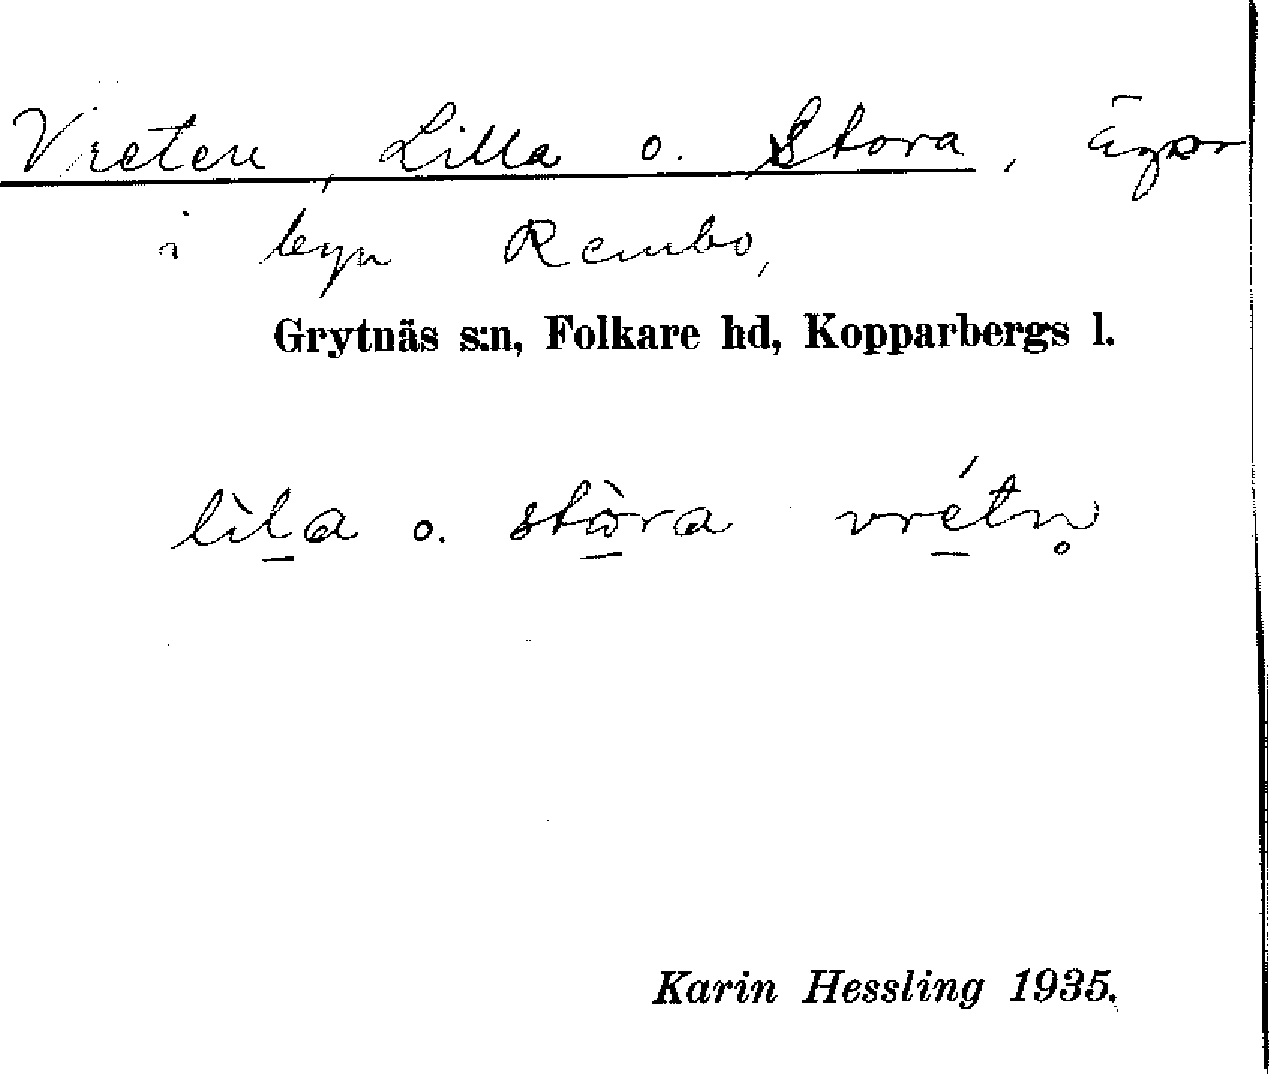 Vreten, Lilla o. Stora, ägor
i byn Rembo,
Grytnäs s:n, Folkare hd, Kopparbergs l.
lìl̠a o. stò̠ra vré̠tn̥
Karin Hessling 1935.